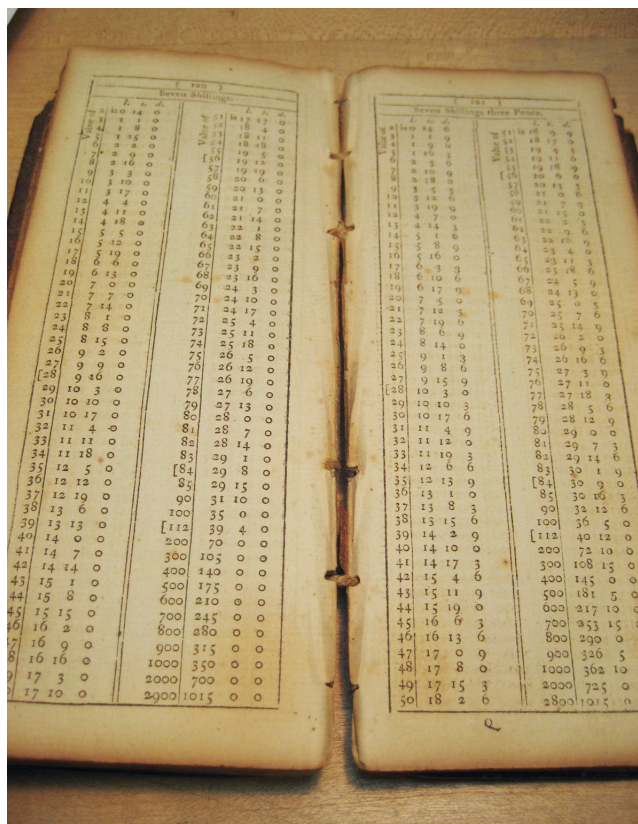 ( 120 )
Seven Shillings.
l. s. d.
Value of
2 is 0 14 0
3 1 1 0
4 1 8 0
5 1 15 0
6 2 2 0
7 2 9 0
8 2 16 0
9 3 3 0
10 3 10 0
11 3 17 0
12 4 4 0
13 4 11 0
14 4 18 0
15 5 5 0
16 5 12 0
17 5 19 0
18 6 6 0
19 6 13 0
20 7 0 0
21 7 7 0
22 7 14 0
23 8 1 0
24 8 8 0
25 8 15 0
26 9 2 0
27 9 9 0
[28 9 16 0
29 10 3 0
30 10 10 0
31 10 17 0
32 11 4 0
33 11 11 0
34 11 18 0
35 12 5 0
36 12 12 0
37 12 19 0
38 13 6 0
39 13 13 0
40 14 0 0
41 14 7 0
42 14 14 0
43 15 1 0
44 15 8 0
45 15 15 0
46 16 2 0
7 16 9 0
8 16 16 0
9 17 3 0
0 17 10 0
l. s. d.
Value of
51 is 17 17 0
52 18 4 0
53 18 11 0
54 18 18 0
55 19 5 0
[56 19 12 0
57 19 19 0
58 20 6 0
59 20 13 0
60 21 0 0
61 21 7 0
62 21 14 0
63 22 1 0
64 22 8 0
65 22 15 0
66 23 2 0
67 23 9 0
68 23 16 0
69 24 3 0
70 24 10 0
71 24 17 0
72 25 4 0
73 25 11 0
74 25 18 0
75 26 5 0
76 26 12 0
77 26 19 0
78 27 6 0
79 27 13 0
80 28 0 0
81 28 7 0
82 28 14 0
83 29 1 0
[84 29 8 0
85 29 15 0
90 31 10 0
100 35 0 0
[112 39 4 0
200 70 0 0
300 105 0 0
400 140 0 0
500 175 0 0
600 210 0 0
700 245 0 0
800 280 0 0
900 315 0 0
1000 350 0 0
2000 700 0 0
2900 1015 0 0
( 121 )
Seven Shillings three Pence.
l. s. d.
Value of
2 is 0 14 6
3 1 1 9
4 1 9 0
5 1 16 3
6 2 3 6
7 2 10 9
8 2 18 0
9 3 5 3
10 3 12 6
11 3 19 9
12 4 7 0
13 4 14 3
14 5 1 6
15 5 8 9
16 5 16 0
17 6 3 3
18 6 10 6
19 6 17 9
20 7 5 0
21 7 12 3
22 7 19 6
23 8 6 9
24 8 14 0
25 9 1 3
26 9 8 6
27 9 15 9
[28 10 3 0
29 10 10 3
30 10 17 6
31 11 4 9
32 11 12 0
33 11 19 3
34 12 6 6
35 12 13 9
36 13 1 0
37 13 8 3
38 13 15 6
39 14 2 9
40 14 10 0
41 14 17 3
42 15 4 6
43 15 11 9
44 15 19 0
45 16 6 3
46 16 13 6
47 17 0 9
48 17 8 0
49 17 15 3
50 18 2 6
l. s. d.
Value of
51 is 18 9 9
52 18 17 0
53 19 4 3
54 19 11 6
55 19 18 9
[56 20 6 0
57 20 13 3
58 21 0 6
59 21 7 9
60 21 15 0
61 22 2 3
62 22 9 6
63 22 16 9
64 23 4 0
65 23 11 3
66 23 18 6
67 24 5 9
68 24 13 0
69 25 0 3
70 25 7 6
71 25 14 9
72 26 2 0
73 26 9 3
74 26 16 6
75 27 3 9
76 27 11 0
77 27 18 3
78 28 5 6
79 28 12 9
80 29 0 0
81 29 7 3
82 29 14 6
83 30 1 9
[84 30 9 0
85 30 16 3
90 32 12 6
100 36 5 0
[112 40 12 0
200 72 10 0
300 108 15 0
400 145 0 0
500 181 5 0
600 217 10 0
700 253 15 0
800 290 0
900 326 5
1000 362 10
2000 725 0
2800 1015 0